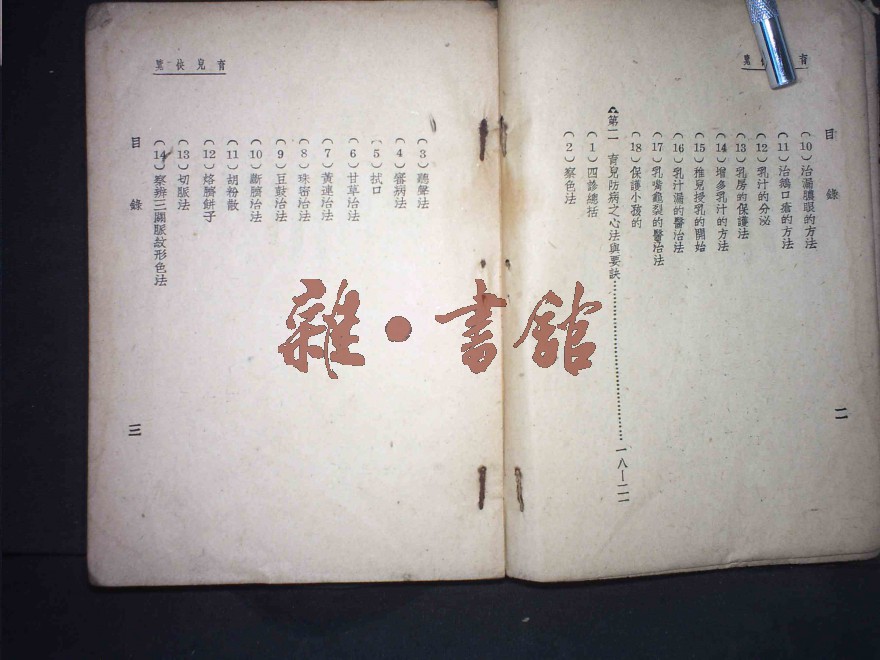 育兒
目錄
(10)治漏膿眼的方法
(11)治鵝口瘡的方法
(12)乳汁的分泌
(13)乳房的保護法
(14)增多乳汁的方法
(15)稚兒授乳的開始
(16)乳汁漏的醫治法
(17)乳嘴龜裂的醫治法
(18)保護小孩的
第二 育兒防病之心法與要訣……一八—二一
(1)四診總括
(2)察色法
二
育兒快覽
(3)聽聲法
(4)審病法
(5)拭口
(6)甘草治法
(7)黃連治法
(8)珠密治法
(9)豆豉治法
(10)斷臍治法
(11)胡粉散
(12)烙臍餅子
(13)切脈法
(14)察辨三關脈紋形色法
目錄
三
雜·書館